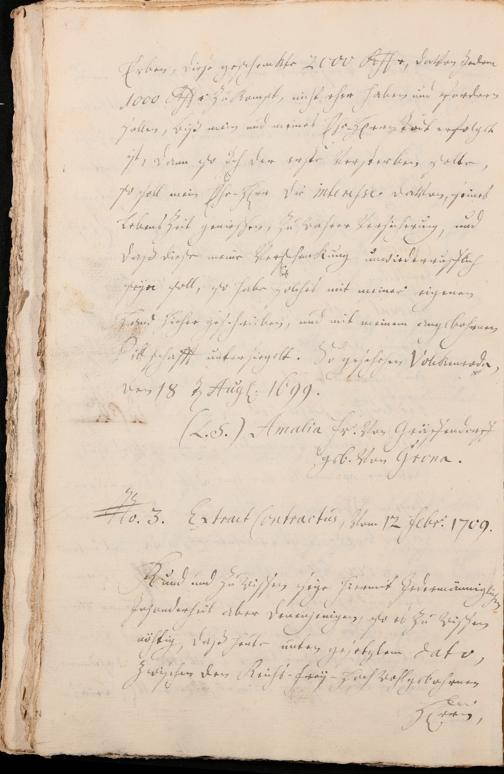 Erben, diese geschenkte 2000 Rthlr, davon jedem
1000 Rthlr zu kompt, nicht eher haben und fordern
sollen, biß mein und meines Ehe Herrn Todt erfolget
ist, dann, so ich der erste versterben solte,
so soll mein Ehe Herr die interesse davon, seines
Lebens Zeit geniessen, zu wahrer Versicherung, und
daß diese meine Verschenkung unwiederrufflich
seyn soll, so habe ich solches mit meiner eigenen
Hand hieher geschrieben, und mit meinem angebohrnen
Pittschafft untersiegelt. So geschehen Volckmerode,
den 18 Augt. 1699.
(L.S.) Amalia Fr. von Gräffendorff
geb. von Grona.
No. 3. Extract Contractus, vom 12 Febr. 1709.
Kund und zu wissen seye hiermit Jedermänniglichen
besonderheit aber denenjenigen, so es zu wissen
nöthig, daß heute unten gesetztem dato,
zwischen dem Reichs-Frey-Hoch Wohlgebohrnen
Herrn,